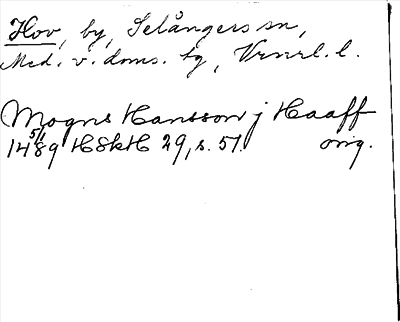 Hov, by, Selångers sn,
Med. v. doms. tg, Vrnrl. l.
Mogns Hansson j Haaff
5/1
1489 HSkH 29, s. 51. orig.